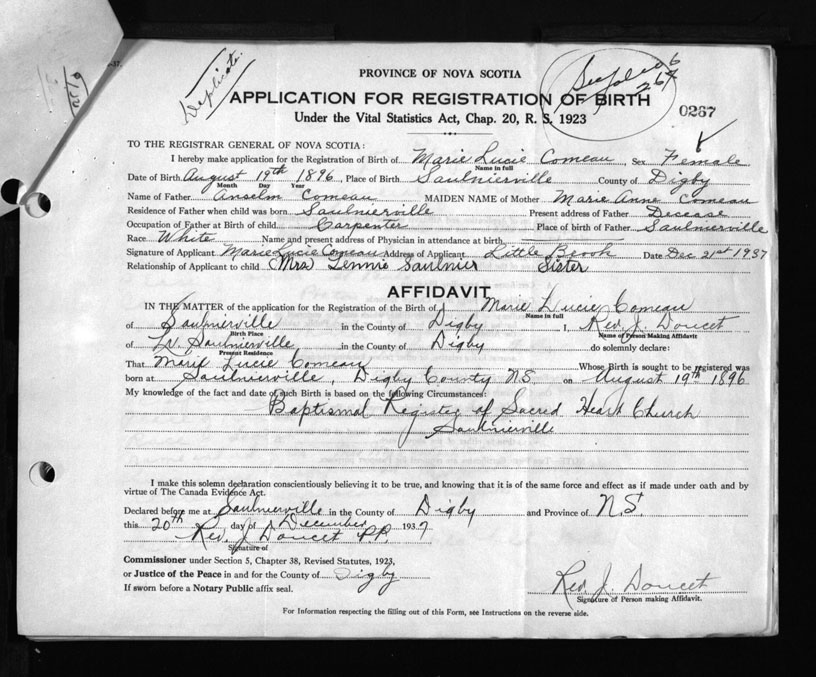 Duplicate
See folio 6
267
PROVINCE OF NOVA SCOTIA
APPLICATION FOR REGISTRATION OF BIRTH
0267
Under the Vital Statistics Act, Chap. 20, R. S. 1923
TO THE REGISTRAR GENERAL OF NOVA SCOTIA:
I hereby make application for the Registration of Birth of Marie Lucie Comeau, Sex Female
Name in full
Date of Birth August 19th 1896, Place of Birth Saulnierville County of Digby
Month Day Year
Name of Father Anselm Comeau MAIDEN NAME of Mother Marie Anne Comeau
Residence of Father when child was born Saulnierville Present address of Father Decease
Occupation of Father at Birth of child Carpenter Place of birth of Father Saulnierville
Race White Name and present address of Physician in attendance at birth
Signature of Applicant Marie Lucie Comeau Address of Applicant Little Brook Date Dec 21st 1937
Relationship of Applicant to child (Mrs Lennie Saulnier Sister
AFFIDAVIT
IN THE MATTER of the application for the Registration of the Birth of Marie Lucie Comeau
Name in full
of Saulnierville in the County of Digby I, Rev. J. Doucet
Birth Place Name of Person Making Affidavit
of Saulnierville in the County of Digby do solemnly declare:
Present Residence
That Marie Lucie Comeau Whose Birth is sought to be registered was
born at Saulnierville, Digby County N.S. on August 19th 1896
My knowledge of the fact and date of such Birth is based on the following Circumstances:
Baptismal Register of Sacred Heart Church
Saulnierville
I make this solemn declaration conscientiously believing it to be true, and knowing that it is of the same force and effect as if made under oath and by
virtue of The Canada Evidence Act.
Declared before me at Saulnierville in the County of Digby and Province of N.S.
this 20th day of December 1937
Rev. J Doucet P.P.
Signature of
Commissioner under Section 5, Chapter 38, Revised Statutes, 1923,
or Justice of the Peace in and for the County of Digby
If sworn before a Notary Public affix seal.
Rev J. Doucet
Signature of Person making Affidavit.
For Information respecting the filling out of this Form, see Instructions on the reverse side.